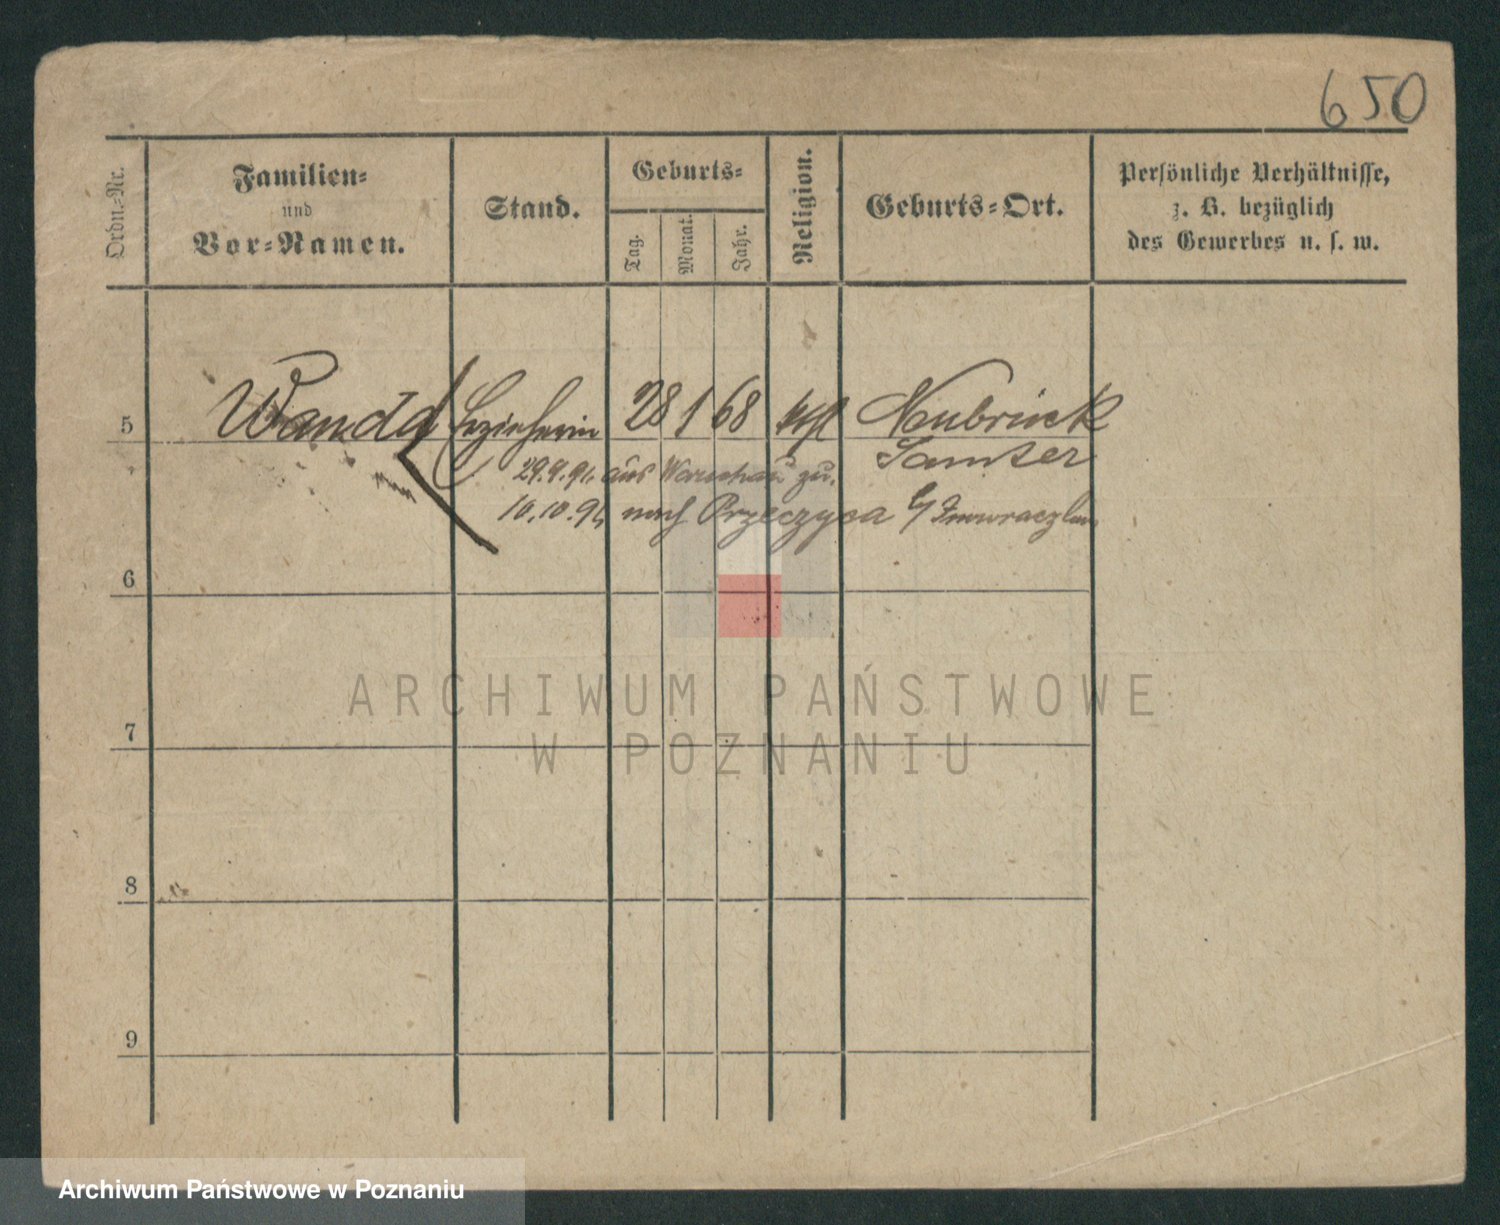 650
Ordn.-Nr.
Familien-
und
Vor-Namen.
Stand.
Geburts-
Tag.
Monat.
Jahr.
Religion.
Geburts-Ort.
Persönliche Verhältnisse,
z. B. bezüglich
des Gewerbes u. s. w.
5 Wanda Erzieherin 28 1 68 ktfl Neubrück
Samter
29.9.91. aus Warschau zu.
10.10.94 nach Przeczyca
6
7
8
9
ARCHIWUM PAŃSTWOWE
W POZNANIU
Archiwum Państwowe w Poznaniu